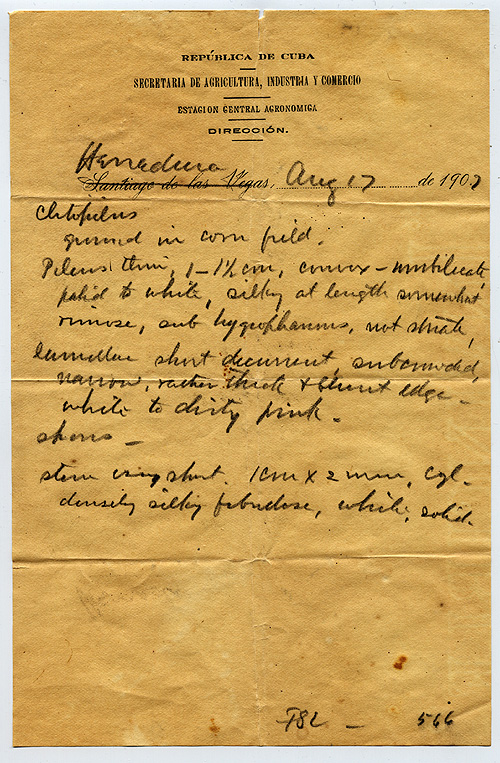 REPÚBLICA DE CUBA
SECRETARIA DE AGRICULTURA, INDUSTRIA Y COMERCIO
ESTACION CENTRAL AGRONOMICA
DIRECCIÓN.
Herradura
Santiago de las Vegas, Aug 17 de 1907
Clitopilus
ground in corn field.
Pileus thin, 1-1½ cm, convex - umbilicate,
pallid to white, silky at length somewhat
rimose, sub hygrophanous, not striate,
lamellae short decurrent, subcrowded,
narrow, rather thick & blunt edge -
white to dirty pink.
spores -
stem very short. 1cm x 2 mm, cyl-
densely silky fibrillose, white, solid.
F82 - 566